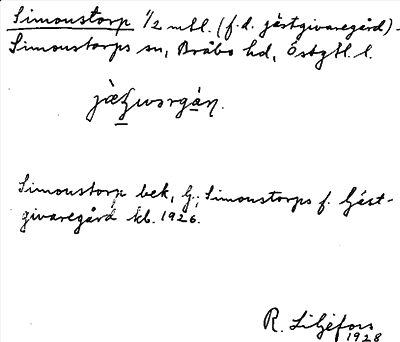 Simonstorp 1/2 mtl. (f.d. jästgivaregård).
Simonstorps sn, Bråbo hd, Östgtl. l.
Simonstorp bek, G; Simonstorps f. Gäst-
givaregård kb. 1926.
R. Liljefors
1928